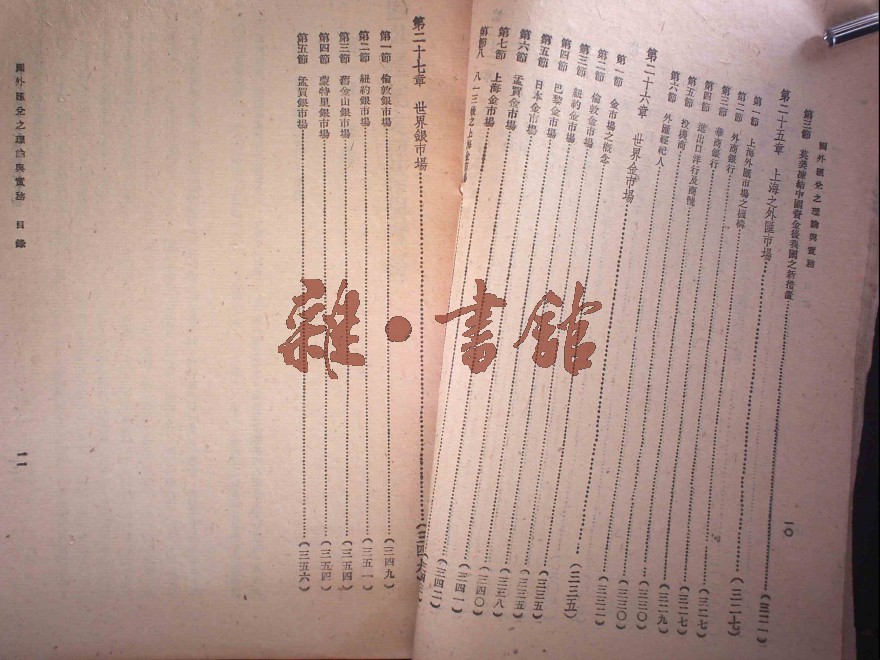 國外匯兌之理論與實務 一〇
第三節 英美凍結中國資金後我國之新措置
第二十五章 上海之外匯市場
第一節 上海外匯市場之機構……(三二一)
第二節 外商銀行……(三二七)
第三節 華商銀行……(三二七)
第四節 進出口洋行及商號……(三二七)
第五節 投機商……(三二九)
第六節 外匯經紀人……(三三〇)
第二十六章 世界金市場……(三三〇)
第一節 金市場之概念……(三三二)
第二節 倫敦金市場……(三三五)
第三節 紐約金市場……(三三五)
第四節 巴黎金市場……(三三五)
第五節 日本金市場……(三三八)
第六節 孟買金市場……(三四〇)
第七節 上海金市場……(三四一)
第八節 八一三後之上海金市場……(三四二)
第二十七章 世界銀市場……(三四九)
第一節 倫敦銀市場……(三四九)
第二節 紐約銀市場……(三五一)
第三節 舊金山銀市場……(三五四)
第四節 蒙特里銀市場……(三五四)
第五節 孟買銀市場……(三五六)
國外匯兌之理論與實務 目錄 一一
雜·書館